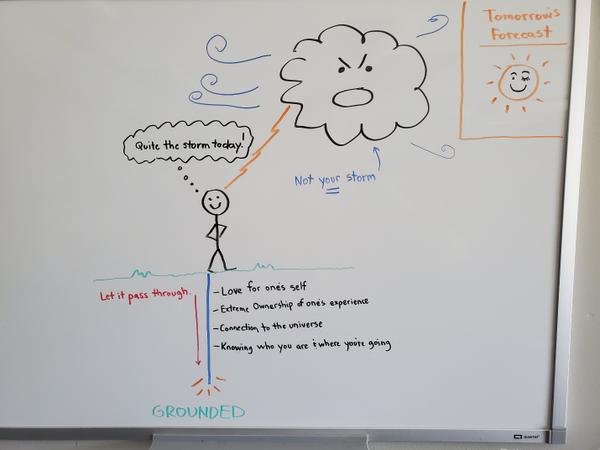 Tomorrow's
Forecast
Quite the storm today!
Not your storm
Let it pass through.
- Love for one's self
- Extreme Ownership of one's experience
- Connection to the universe
- Knowing who you are & where you're going
GROUNDED